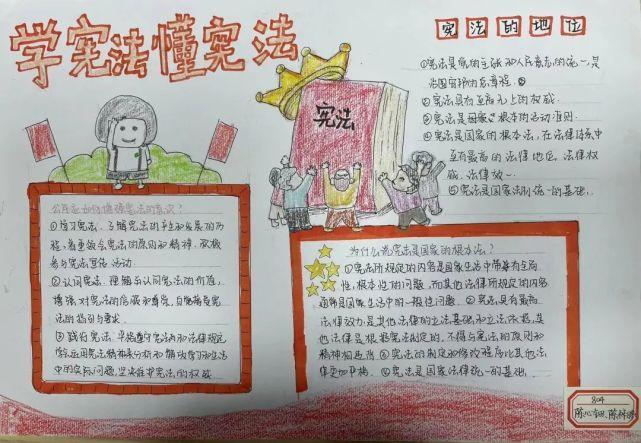 学宪法懂宪法
宪法的地位
宪法
①宪法是党的主张和人民意志的统一,是
治国安邦的总章程。
②宪法具有至高无上的权威。
③宪法是国家根本的活动准则。
④宪法是国家的根本法,在法律体系中
至有最高的法律地位、法律权
威、法律效
⑤宪法是国家法制统一的基础。
公民应如何增强宪法的意识?
①学习宪法、了解宪法的产生和发展的历
程,着重领会宪法的原则和精神,积极
参与宪法宣传活动
②认同宪法,理解与认同宪法的价值,
增强对宪法的信服和尊崇,自觉接受宪
法的指引与要求
③践行宪法,严格遵守宪法和法律规定
学会运用宪法精神来分析和解决学习和生活
中的实际问题,坚决维护宪法的权威
为什么说宪法是国家的根本法?
①宪法所规定的内容是国家生活中带有全局
性,根本性的问题,而其他法律所规定的内容
通常是国家生活中的一般性问题。②宪法具有最高
法律效力,是其他法律的立法基础和立法依据,其
他法律是根据宪法制定的,不得与宪法的原则和
精神相违背③宪法的制定和修改程序比其他法
律更加严格。④宪法是国家法律统一的基础。
804
陈心